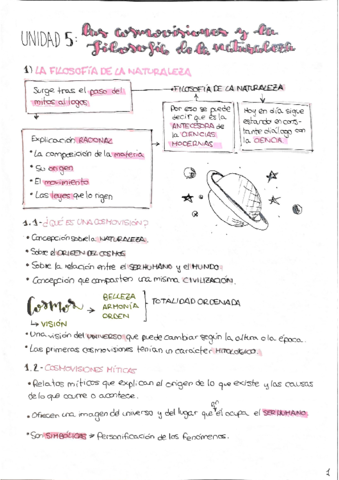 UNIDAD 5: Las cosmovisiones y la
filosofía de la naturaleza
1) LA FILOSOFÍA DE LA NATURALEZA
Surge tras el paso del
mitos al logos
FILOSOFÍA DE LA NATURALEZA
Por eso se puede
decir que es la
ANTECESORA de
la CIENCIAS
MODERNAS
Hoy en día sigue
estando en cons-
tante diálogo con
la CIENCIA.
Explicación RACIONAL
• La composición de la materia
• Su origen
• El movimiento
• Las leyes que lo rigen
1.1- ¿QUÉ ES UNA COSMOVISIÓN?
• Concepción sobre la NATURALEZA
• Sobre el ORIGEN DEL COSMOS
• Sobre la relación entre el SER HUMANO y el MUNDO
• Concepción que comparten una misma CIVILIZACIÓN.
Cosmos
BELLEZA
ARMONÍA
ORDEN
TOTALIDAD ORDENADA
VISIÓN
• Una visión del universo que puede cambiar según la cultura o la época.
• Las primeras cosmovisiones tenían un carácter MITOLÓGICO.
1.2- COSMOVISIONES MÍTICAS
• Relatos míticos que explican el origen de lo que existe y las causas
de lo que ocurre o acontece.
• Ofrecen una imagen del universo y del lugar que en él ocupa el SER HUMANO
• Son SIMBÓLICAS → Personificación de los fenómenos.
1